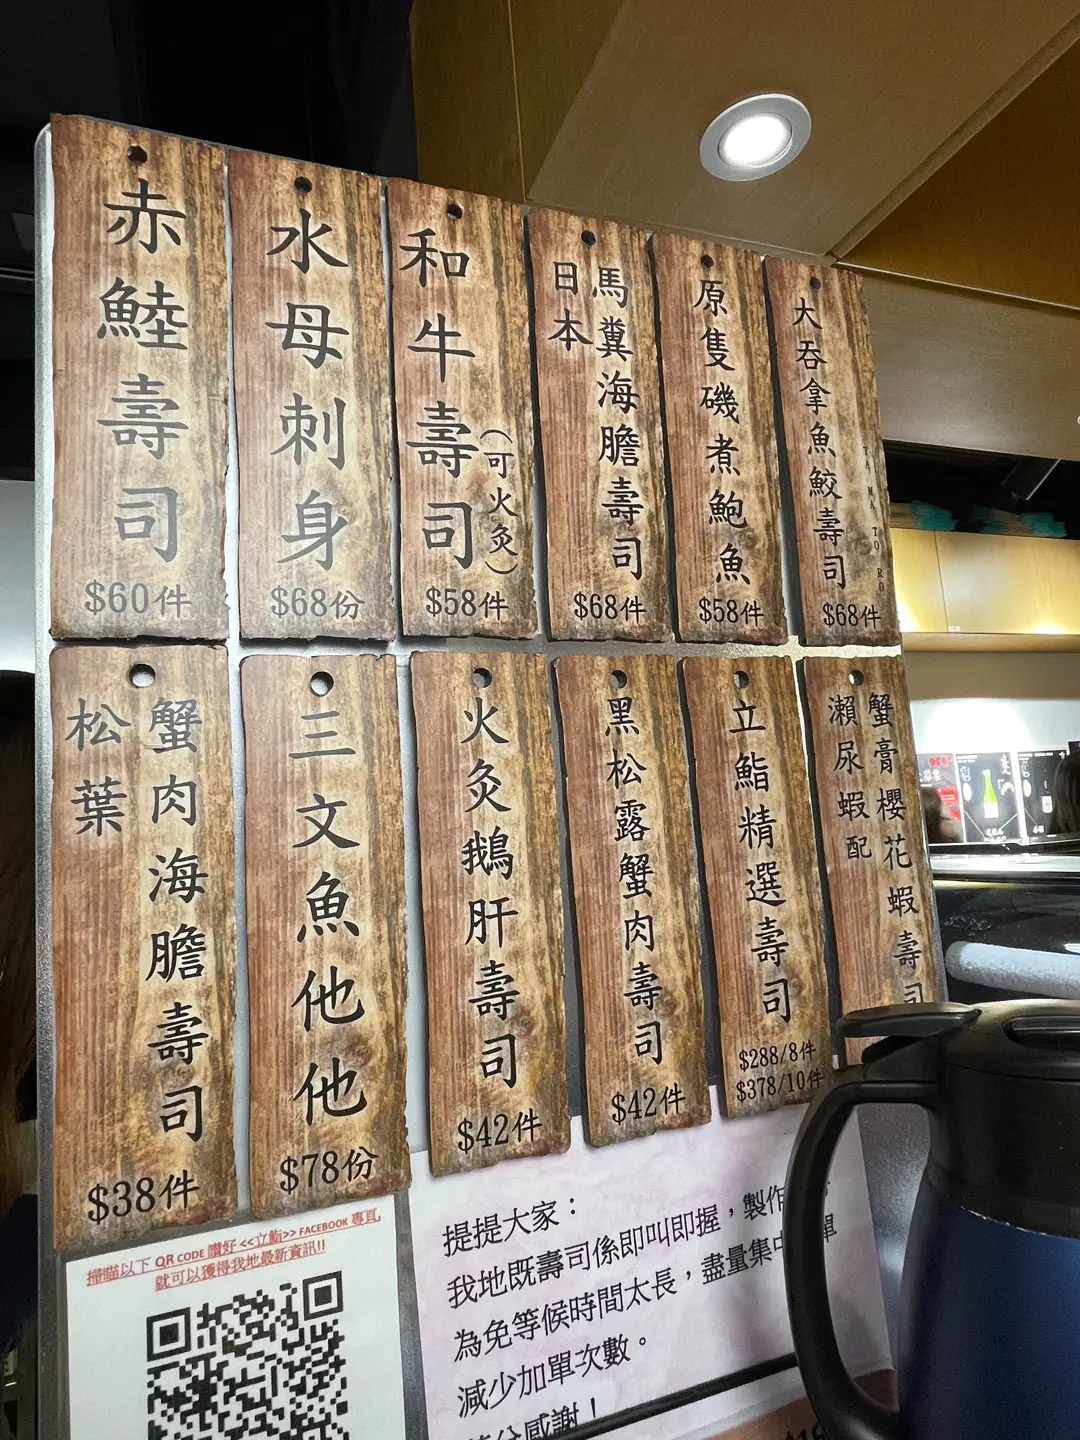 赤鯥壽司
$60件
水母刺身
$68份
和牛壽司
(可火灸)
$58件
日本
馬糞海膽壽司
$68件
原隻磯煮鮑魚
$58件
大吞拿魚鮫壽司
TA MA TO RO
$68件
松葉
蟹肉海膽壽司
$38件
三文魚他他
$78份
火灸鵝肝壽司
$42件
黑松露蟹肉壽司
$42件
立鮨精選壽司
$288/8件
$378/10件
瀨尿蝦配
蟹膏櫻花蝦壽司
掃瞄以下 QR CODE 讚好 <<立鮨>> FACEBOOK 專頁
就可以獲得我地最新資訊!!
提提大家：
我地既壽司係即叫即握，製作
為免等候時間太長，盡量集中 單
減少加單次數。
感謝！